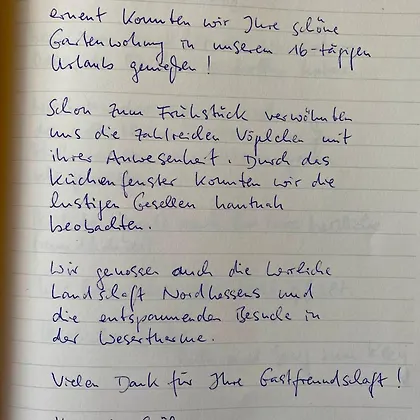 erneut konnten wir Ihre schöne
Gartenwohnung in unserem 16-tägigen
Urlaub genießen!
Schon zum Frühstück verwöhnten
uns die zahlreichen Vögelchen mit
ihrer Anwesenheit. Durch das
Küchenfenster konnten wir die
lustigen Gesellen hautnah
beobachten.
Wir genossen auch die herrliche
Landschaft Nordhessens und
die entspannenden Besuche in
der Wesertherme.
Vielen Dank für Ihre Gastfreundschaft!